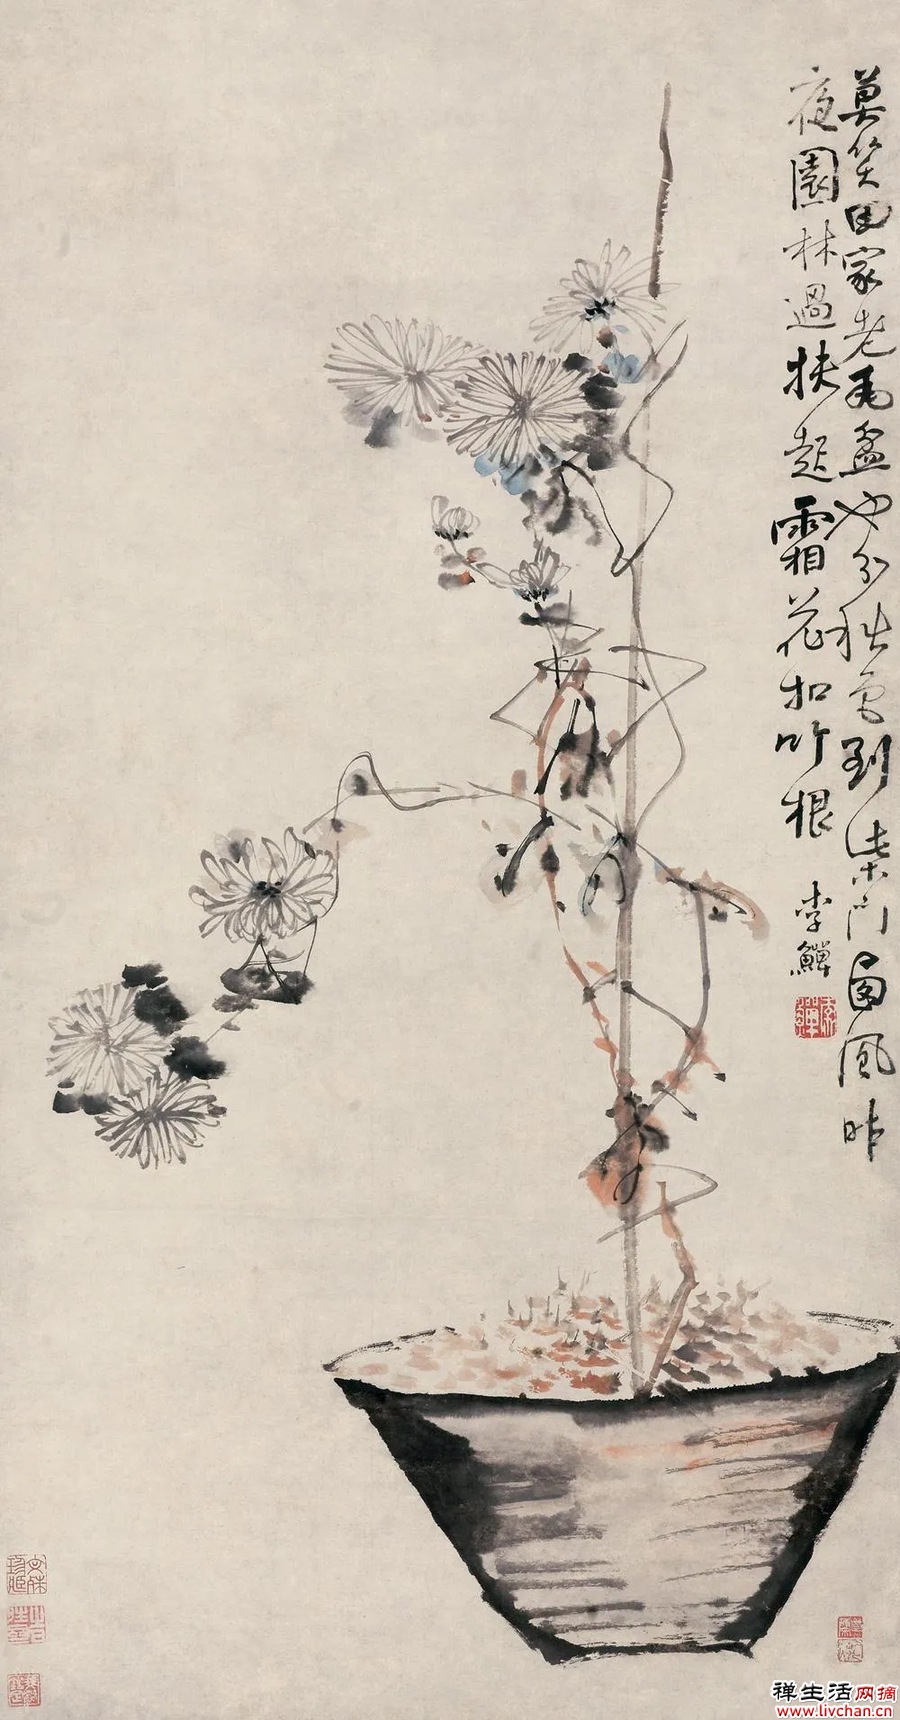 莫笑田家老瓦盆也分秋色到柴門西風昨
夜園林過扶起霜花扣竹根
李鱓
禅生活网摘
www.livchan.cn